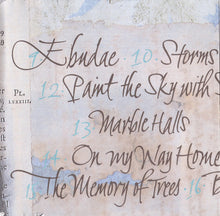 9 Ebudae · 10 Storms
12 Paint the Sky with
PL.
13 Marble Halls
14 On my Way Home
15 The Memory of Trees · 16